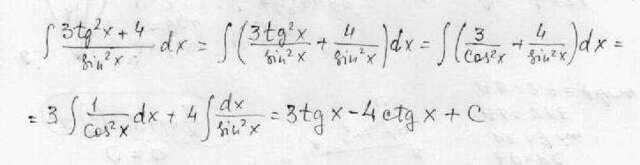 ∫ (3tg²x + 4)/(sin²x) dx = ∫ ((3tg²x)/(sin²x) + 4/(sin²x)) dx = ∫ (3/(cos²x) + 4/(sin²x)) dx =
= 3 ∫ 1/(cos²x) dx + 4 ∫ dx/(sin²x) = 3tg x - 4 ctg x + C